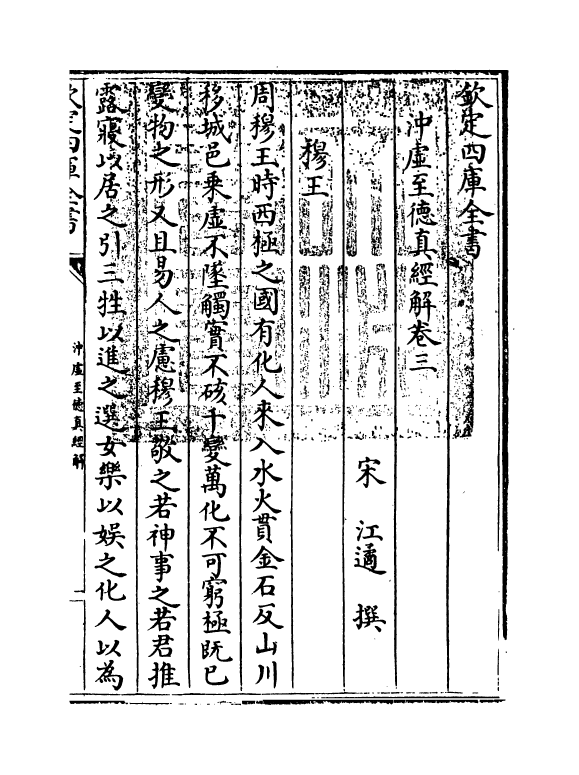 欽定四庫全書
沖虛至德真經解卷三
宋 江遹 撰
穆王
周穆王時西極之國有化人來入水火貫金石反山川
移城邑乘虛不墜觸實不硋千變萬化不可窮極既已
變物之形又且易人之慮穆王敬之若神事之若君推
露寢以居之引三牲以進之選女樂以娛之化人以為
欽定四庫全書
沖虛至德真經解